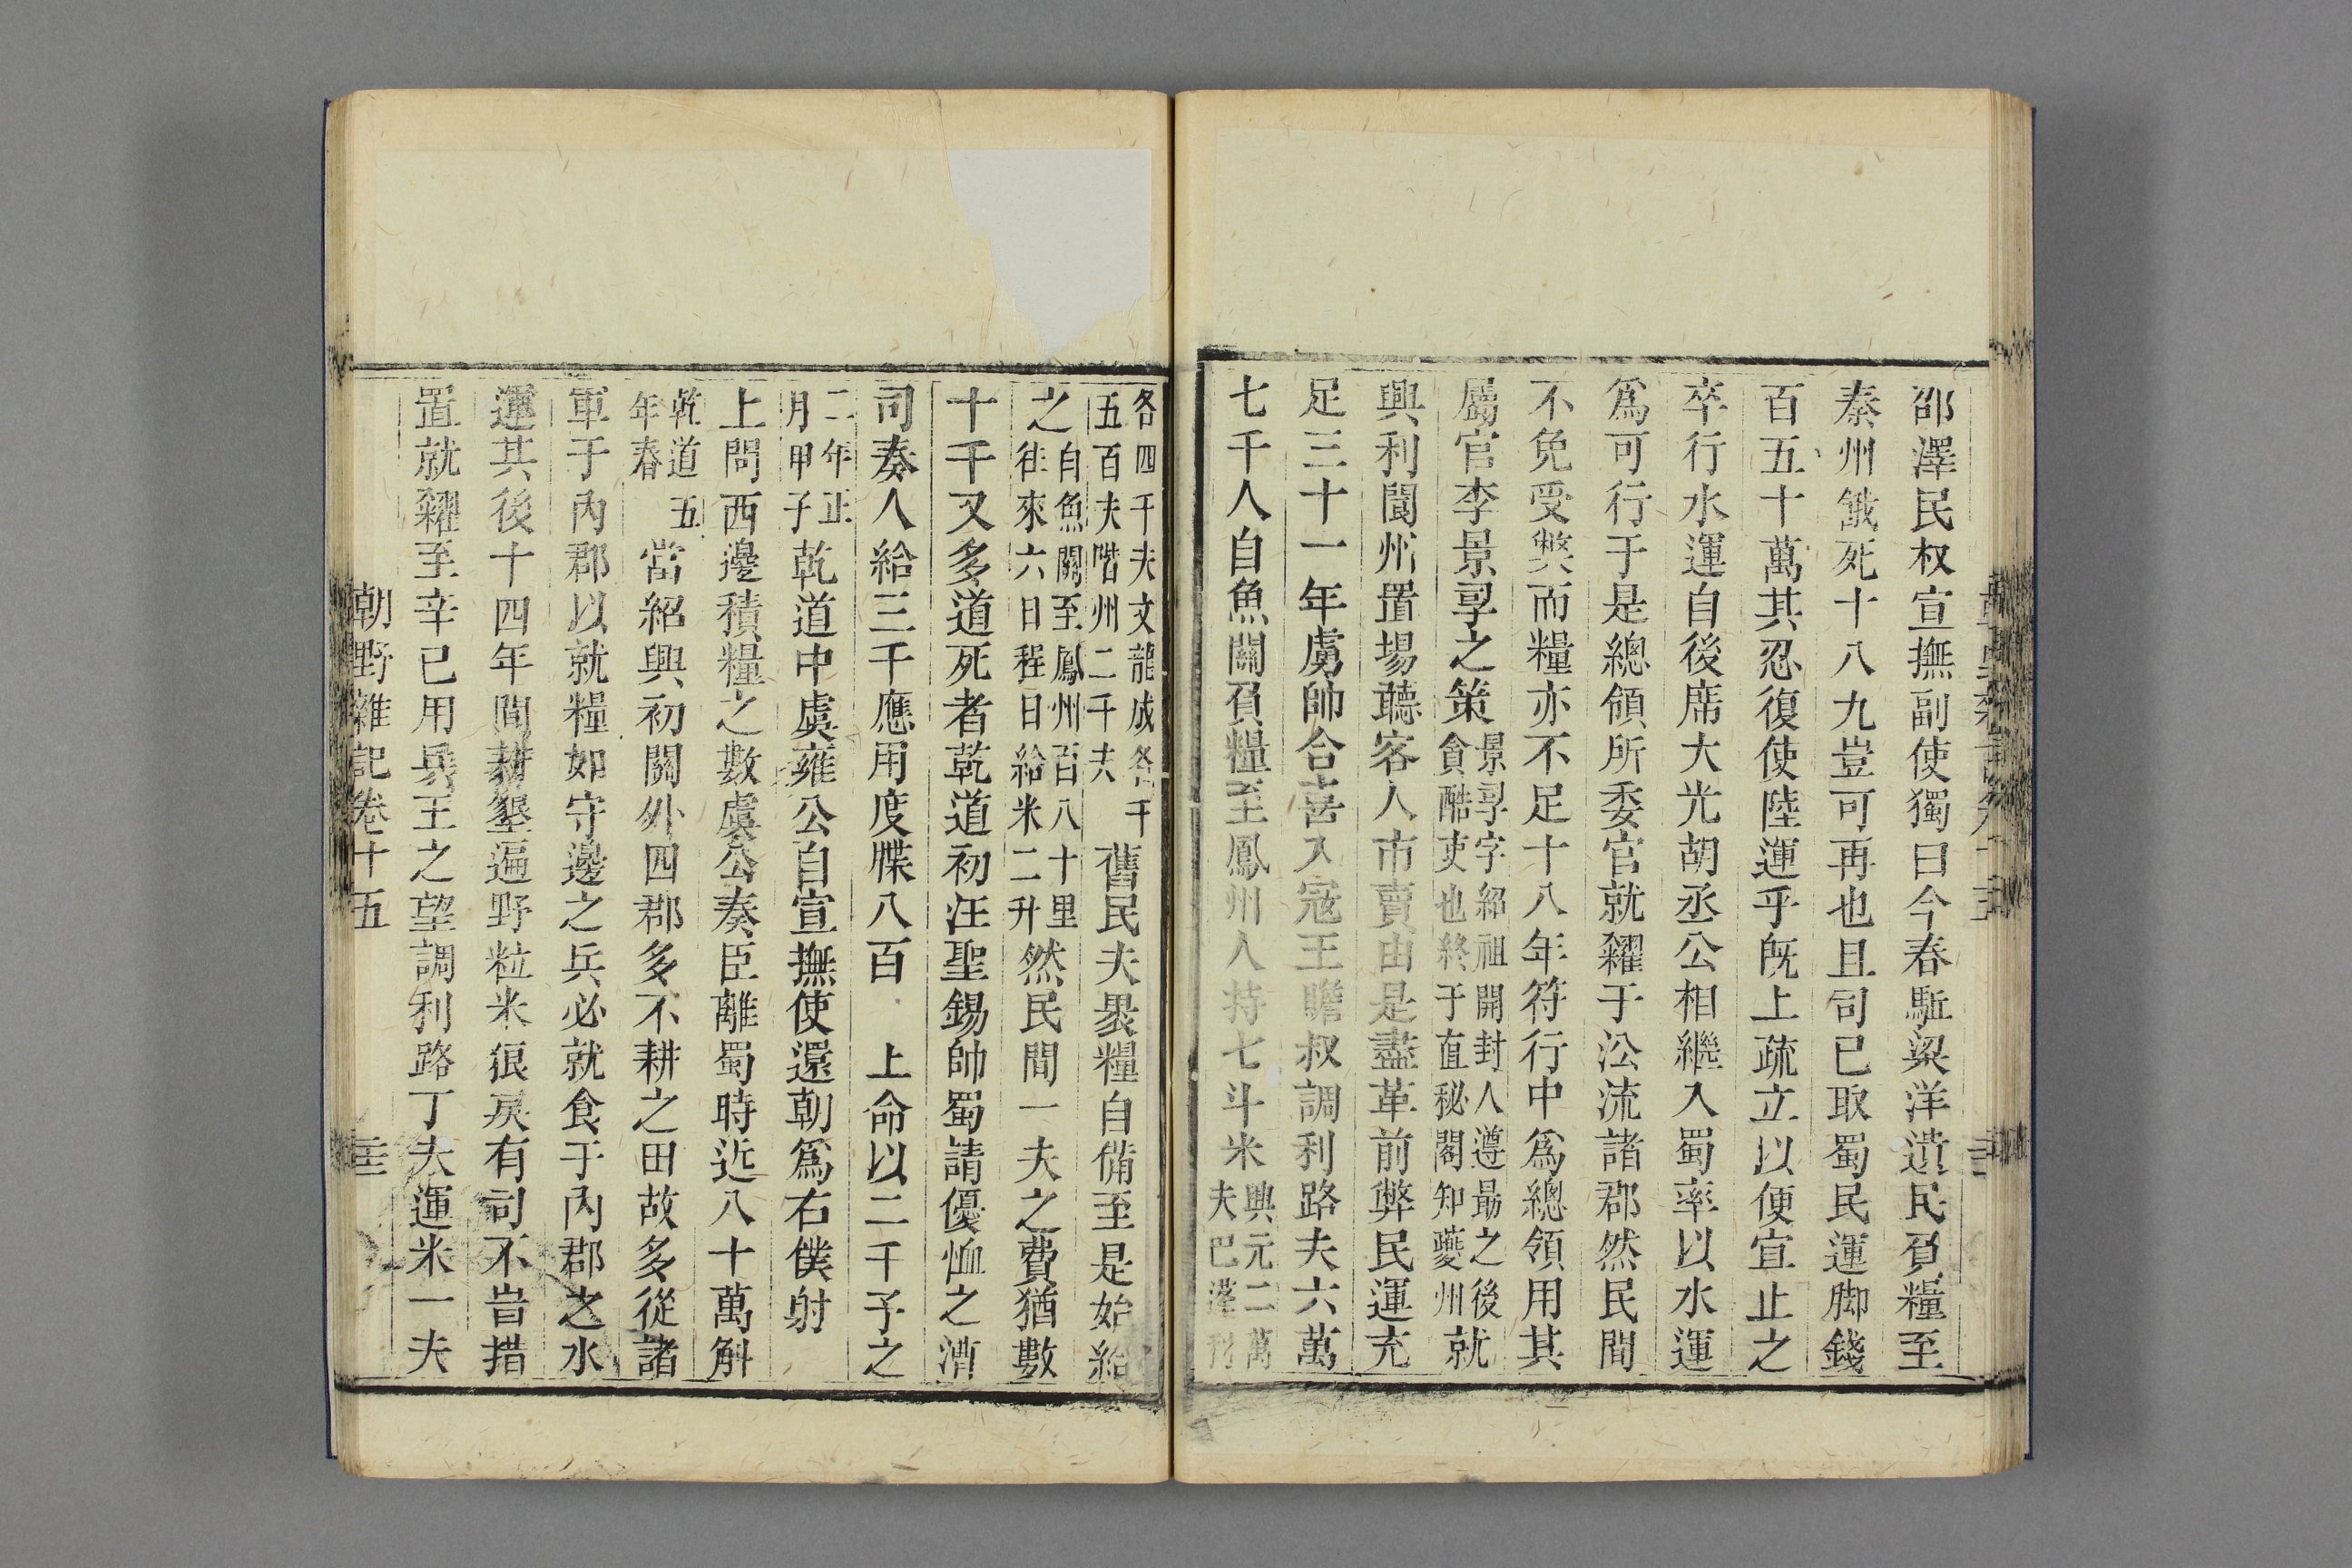 邵澤民权宣撫副使獨曰今春駈梁洋遺民負糧至
秦州餓死十八九豈可再也且司已取蜀民運脚錢
百五十萬其忍復使陸運乎既上疏立以便宜止之
卒行水運自後席大光胡丞公相繼入蜀率以水運
爲可行于是總領所委官就糴于㳂流諸郡然民間
不免受獘而糧亦不足十八年符行中爲總領用其
屬官李景孠之策
景孠字紹祖開封人遵勗之後
貪酷吏也終于直秘閣知夔州
就
興利閬州置場聽客人市賣由是盡革前弊民運充
足三十一年虜帥合喜入寇王瞻叔調利路夫六萬
七千人自魚關負糧至鳳州人持七斗米
興元二萬
夫巴蓬利
各四千夫文龍成各千
五百夫階州二千夫
舊民夫褁糧自備至是始給
之
自魚關至鳳州百八十里
往來六日程日給米二升
然民間一夫之費猶數
十千又多道死者乾道初汪聖錫帥蜀請優恤之漕
司奏人給三千應用度牒八百 上命以二千予之
二年正
月甲子
乾道中虞雍公自宣撫使還朝爲右僕射
上問西邊積糧之數虞公奏臣離蜀時近八十萬斛
乾道五
年春
當紹興初關外四郡多不耕之田故多從諸
軍于內郡以就糧如守邊之兵必就食于內郡之水
運其後十四年間耕墾遍野粒米狼戾有司不旹措
置就糴至辛巳用兵王之望調利路丁夫運米一夫
朝野雜記卷十五